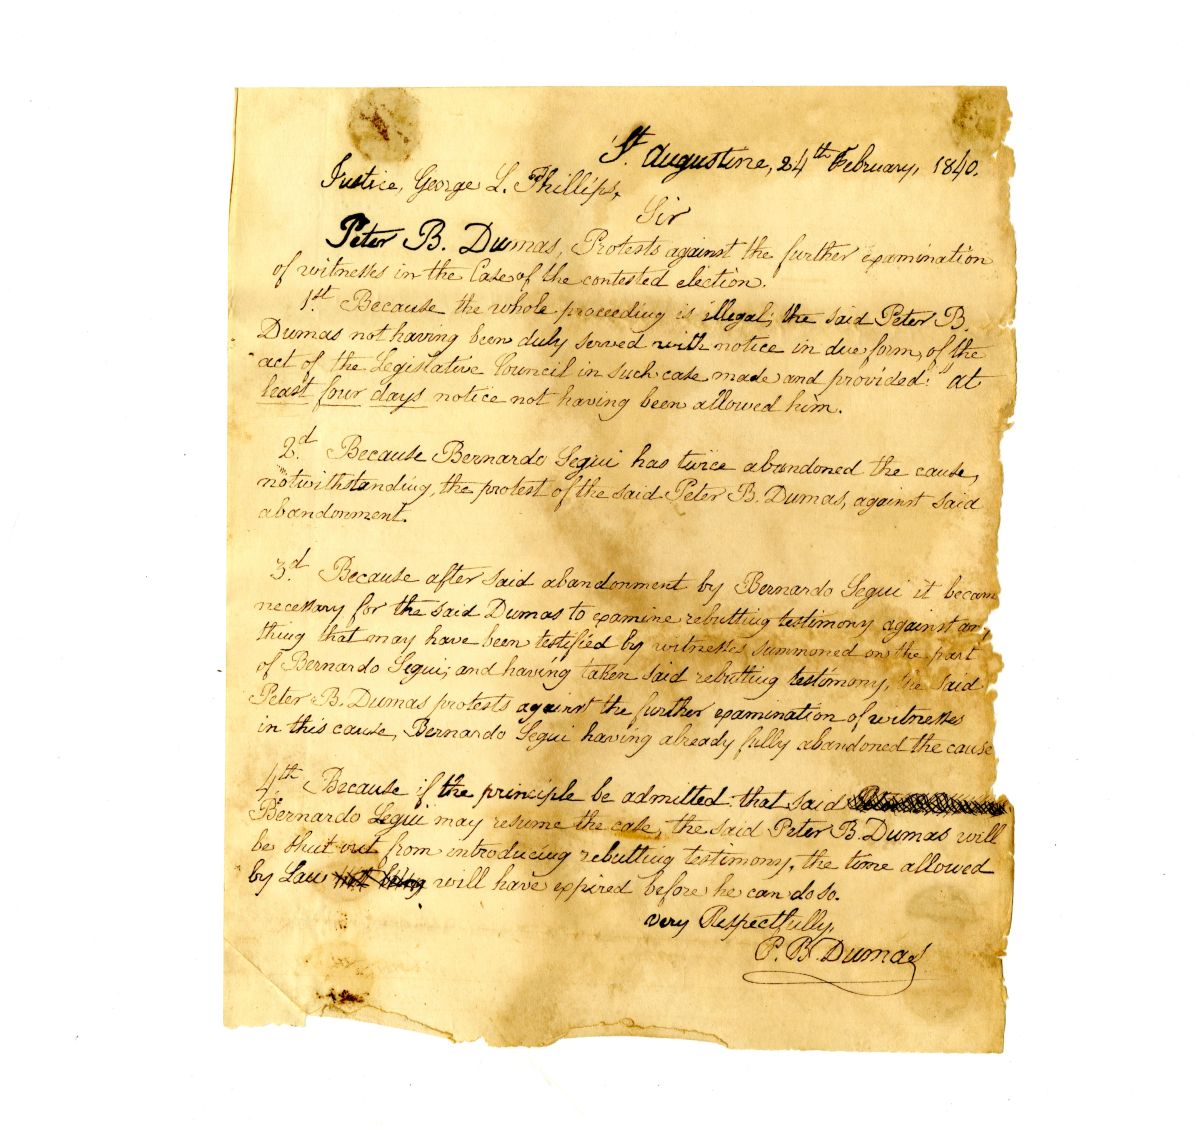 St Augustine, 24th February, 1840.
Justice, George L. Phillips,
Sir
Peter B. Dumas, Protests against the further examination
of witnesses in the Case of the contested election.
1st. Because the whole proceeding is illegal; the said Peter B.
Dumas not having been duly served with notice in due form, of the
act of the Legislative Council in such case made and provided: "at
least four days notice not having been allowed him.
2d. Because Bernardo Segui has twice abandoned the cause,
notwithstanding, the protest of the said Peter B. Dumas, against said
abandonment.
3d. Because after said abandonment by Bernardo Segui it becam
necessary for the said Dumas to examine rebutting testimony against any
thing that may have been testified by witnesses summoned on the part
of Bernardo Segui; and having taken said rebutting testimony, the said
Peter B. Dumas protests against the further examination of witnesses
in this cause, Bernardo Segui having already fully abandoned the cause
4th. Because if the principle be admitted that said
Bernardo Segui may resume the case, the said Peter B. Dumas will
be shut out from introducing rebutting testimony, the time allowed
by Law not being will have expired before he can do so.
very Respectfully,
P. B. Dumas